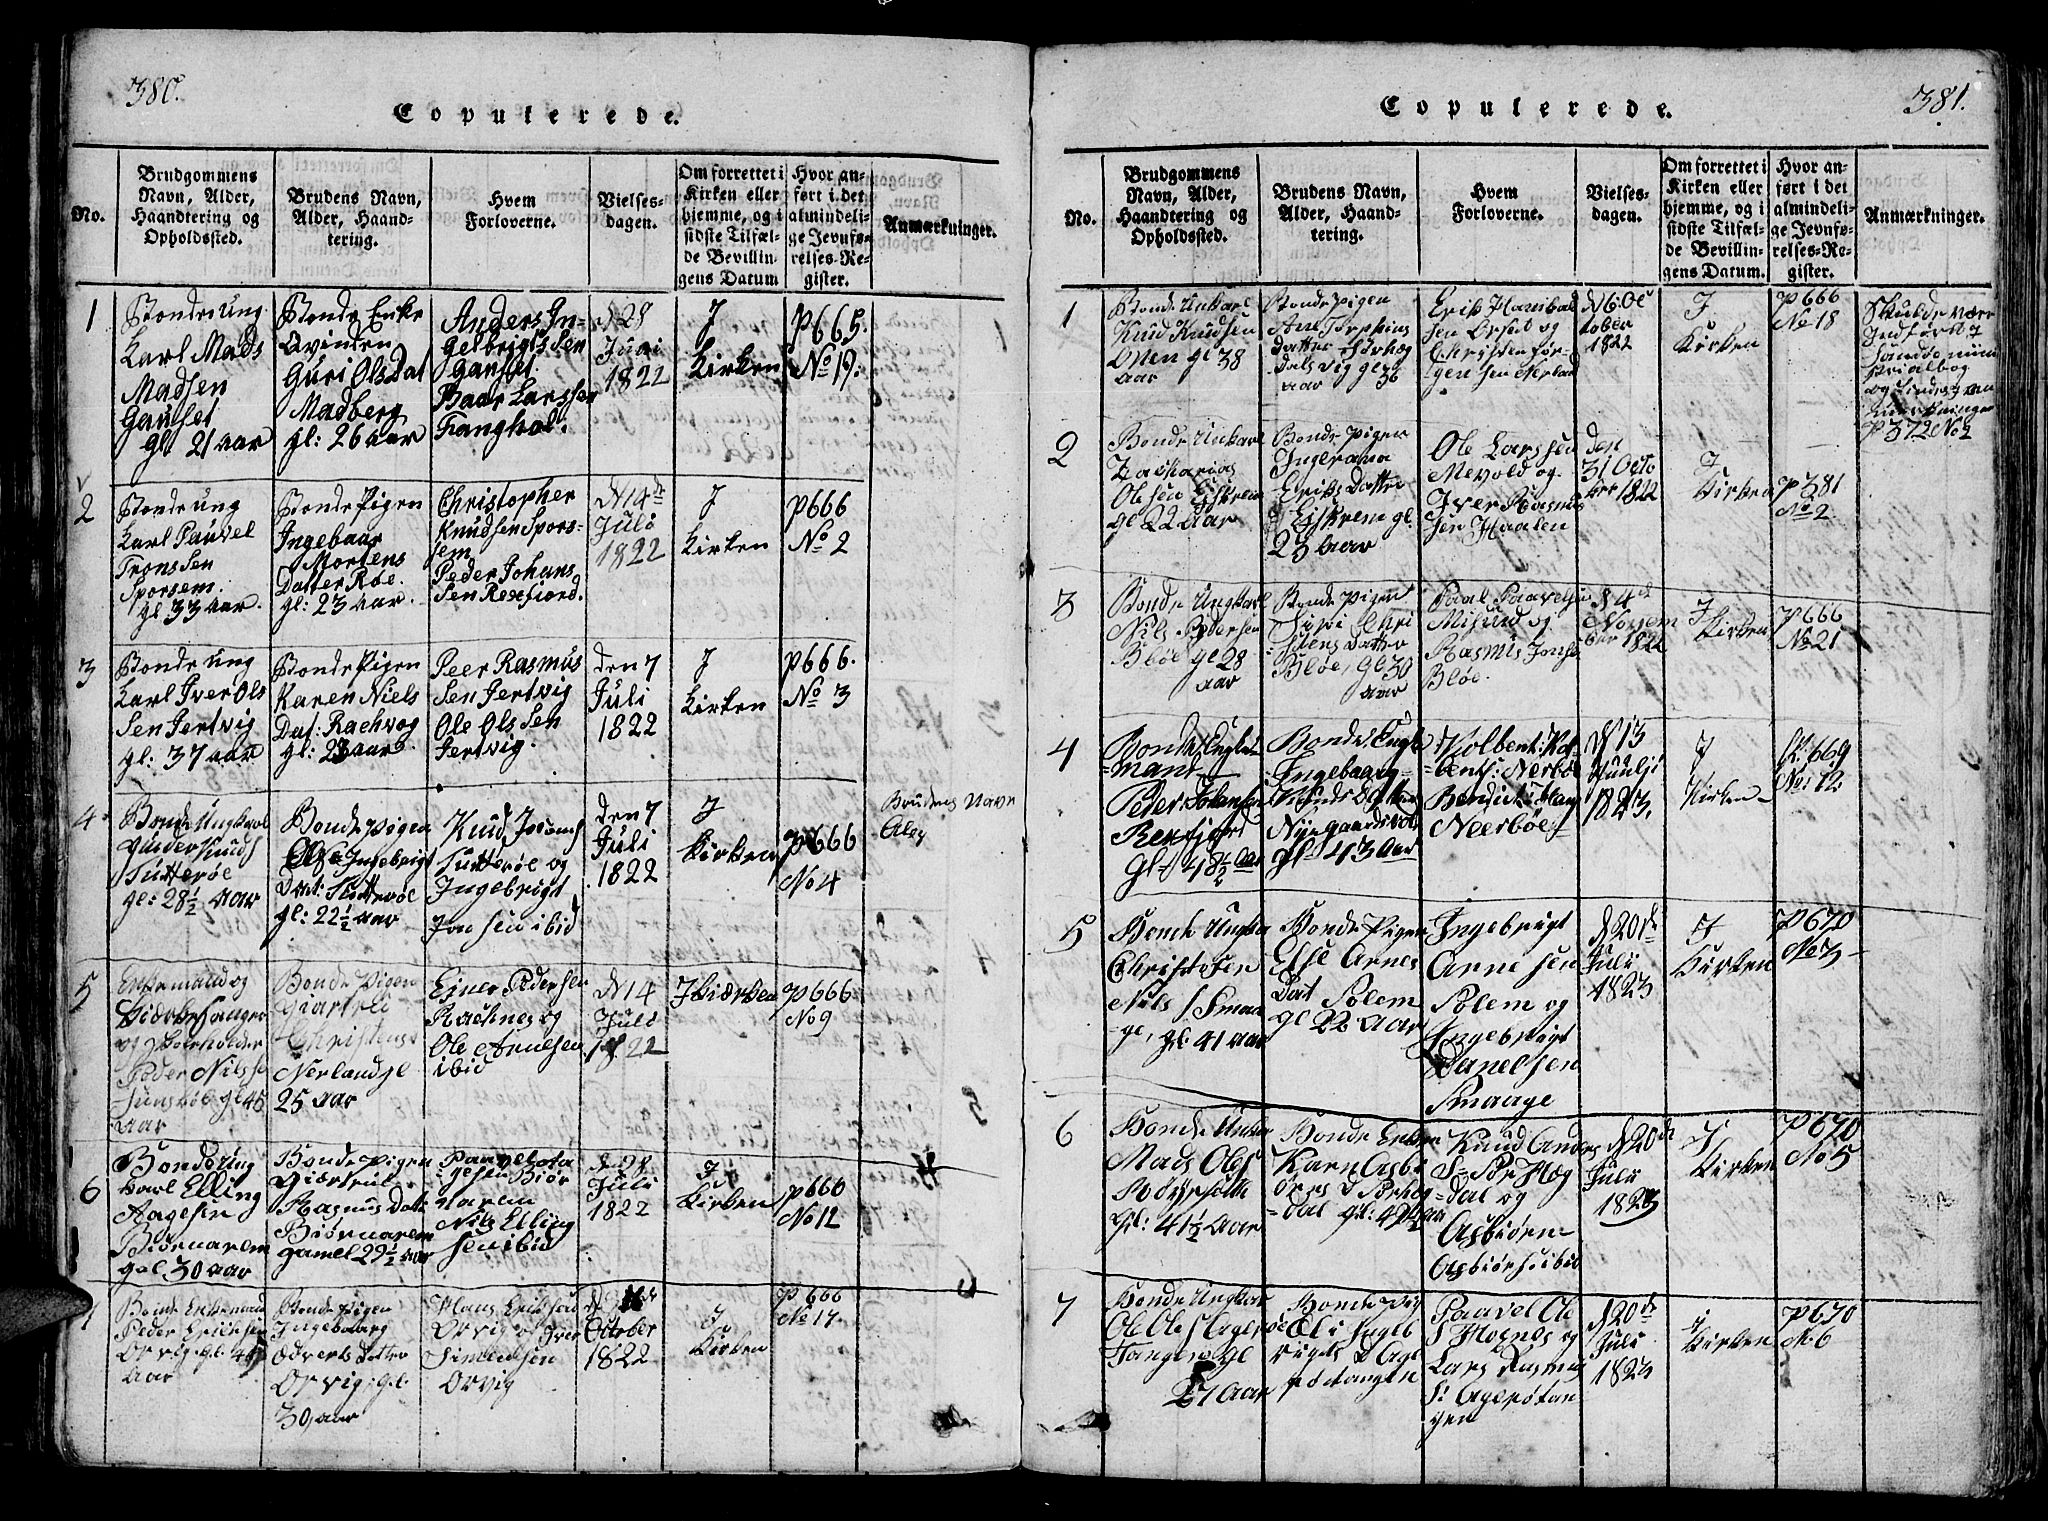 380.
Copulerede.
No.
Brudgommens
Navn, Alder,
Haandtering og
Opholdssted.
Brudens Navn,
Alder, Haand-
tering.
Hvem
Forloverne.
Vielses-
dagen.
Om forrettet i
Kirken eller
hjemme, og i
sidste Tilfæl-
de Bevillin-
gens Datum
Hvor an-
ført i det
almindeli-
ge Jevnfø-
relses-Re-
gister.
Anmærkninger.
1
Bonde ung
Karl Mads
Madsen
Gauset
gl: 21 aar
Bonde Enke
Qvinden
Guri Ols Dat
Madberg
gl: 26 aar
Anders In-
gelbrigts Sen
Gauset
Baar Larssen
Fanghol.
d 28
Juni
1822
J
Kirken
P 665.
No 19.
2
Bonde ung
Karl Pauvel
Trons Sen
Sporsem.
gl 33 aar.
Bonde Pigen
Ingebaar
Mortens
Datter Røe.
gl: 23 aar.
Christopher
Knudsen Spors-
sem
Peder Johans
Sen Rexfiord.
d 14 de
Juli
1822
J
Kirken
P 666
No 2
3
Bonde ung
Karl Iver Ols
Sen Jertvig
gl: 37 aar
Bonde Pigen
Karen Niels
Dat: Rachvog
gl: 23 aar
Peer Rasmus
Sen Jertvig
Ole Ols Sen
Jertvig.
den 7
Juli
1822
J
Kirken
P 666.
No 3
4
Bonde Ungkarl
Anders Knuds
Sutterøe
gl: 28½ aar
Bonde Pigen
Ingebrigt
Dat: Sutterøe
gl: 22½ aar
Knud Jvers
Sutterøe og
Ingebrigt
Jonsen ibid
den 7
Juli
1822
J
Kirken
P 666
No 4
Brudens Navn
5
Enkemand og
Kirkesanger
Peder Nilsse
gl 45
aar
Bonde Pigen
Christens
Nerland gl
25 aar
Ejner Pedersen
Rachnes og
Ole Arnesen
ibid
d 14
Juli
1822
J Kiærken
P 666
No 9
6
Bonde ung
Karl Elling
Aagesen
Biørnarem
gl 30 aar
Bonde Pigen
Giertrul
Rasmus Datt
Biørnarem
gamel 29½ aar
Paavel Aa
gesen Biør
narem
Nils Elling
sen ibid
d 28
Juli
1822
J
Kirken
P 666
No 12
7
Bonde Enkemand
Peder Ericksen
Orvig gl: 44
Aar
Bonde Pigen
Ingebaarg
Odverts datter
Orvig gl
30 aar
Hans Eriksen
Orvig og Iver
Simensen
Orvig
October
1822
J
Kirken
P 666
No 17.
381.
Copulerede.
No.
Brudgommens
Navn, Alder,
Haandtering og
Opholdssted.
Brudens Navn,
Alder, Haand-
tering.
Hvem
Forloverne.
Vielses-
dagen.
Om forrettet i
Kirken eller
hjemme, og i
sidste Tilfæl-
de Bevillin-
gens Datum.
Hvor an-
ført i det
almindeli-
ge Jevnfø-
relses-Re-
gister.
Anmærkninger.
1
Bonde Unkarl
Knud Knudsen
gl 38
aar
Bonde Pigen
Ane Torstens
datter Sørhog
dalsvig gl 36
aar
Erik Hanibal
sen Ørset og
Christen Jør-
gensen Nerland
d 6 Oc
tober
1822
J
Kirken
P 666
No 18
Skulde være
Indført i
P 372 No 2
2
Bonde Unkarl
Zacharias
Olsen Eiskrem
gl 22 aar
Bonde Pigen
Ingerana
Eriks Datter
Eiskrem gl.
23 aar
Ole Larssen
Mevold og
Iver Rasmus
sen Haalen
den
31 Octo
ber 1822
J
Kirken
P 381
No 2.
3
Bonde Ungkarl
Nils Pedersen
Bløe gl 28
aar
Bonde Pigen
Siri Chri
stens datter
Bløe, gl 30
aar
Paal Paavelsen
Misund og
Rasmus Jonse
Bløe.
d 4 de
Novem
ber 1822
J
Kirken
P 666
No 21
4
mand
Peder Johansen
Rexfjord
gl 48½ Aar
Ingebaarg
Knuds Datter
Nyegaardsvold
gl 43 Aar
Kolbent: Kol-
bents: Nerbøe
Neerbøe
d 13
Juulji
1823.
J
Kirken
P. 669
No 12.
5
Bonde Ungkar
Christofer
Nils S Smaa
ge, gl: 41 aar
Bonde Pigen
Else Arnes
Dat Solem
gl 22 aar
Ingebrigt
Arnesen
Solem og
Ingebrigt
Danelsen
Smaage
d 20 de
Juli
1823
J
Kirken
P 670
No 3
6
Bonde Unkar
Mads Ols
gl: 41½ aar
Bonde Enken
Karn Asbi
ørns d Sørhog
dal gl: 49½ aar
Knud Anders
S Sør Høg
dal og
Asbiørn
Asbiørs: ibid
d 20 de
Juli
1823
J
Kirken
P 670
No 5
7
Bonde Ungkar
Ole Ols Agerøe
Tangen gl
27 aar
Bonde Pig
Eli Ingeb
rigts d Age
røetangen
Paavel Ole
S Hognes og
Lars Rasmus
S: Agerøtan
gen
d 20 de
Juli
1823
i
Kirken
P 670
No 6